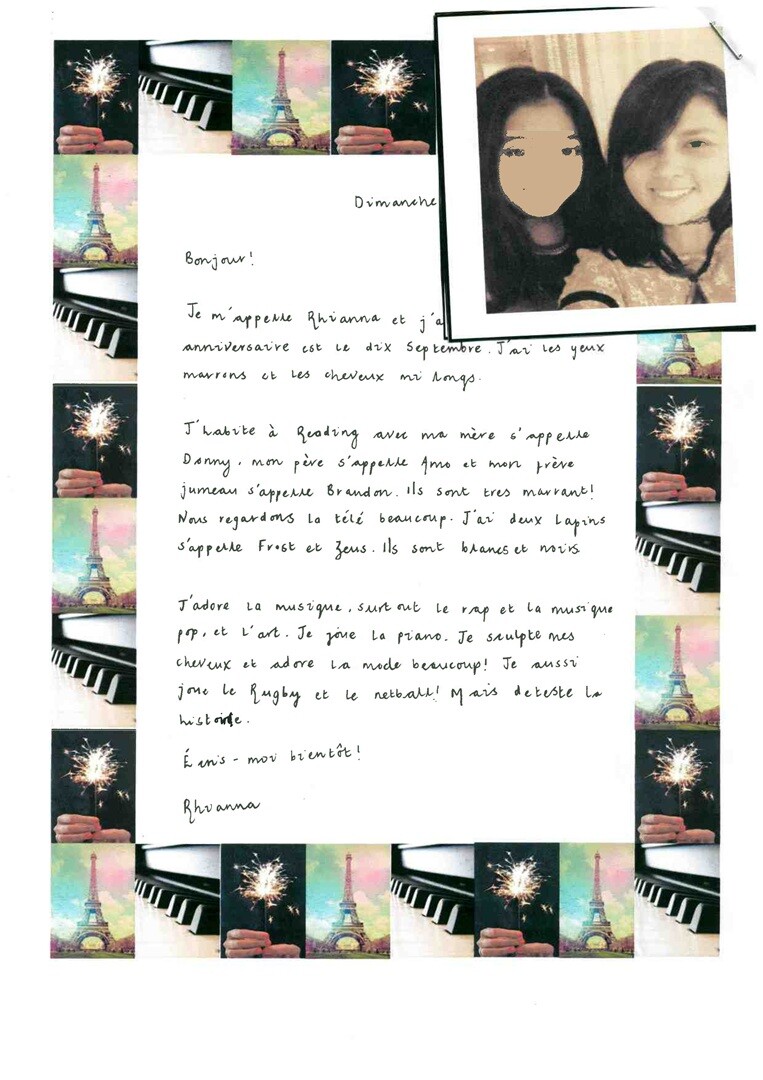 Dimanche
Bonjour!
Je m'appelle Rhianna et j'a
anniversaire est le dix Septembre. J'ai les yeux
marrons et les cheveux mi longs.
J'habite à Reading avec ma mère s'appelle
Donny, mon père s'appelle Amo et mon frère
jumeau s'appelle Brandon. Ils sont tres marrant!
Nous regardons la télé beaucoup. J'ai deux lapins
s'appelle Frost et Zeus. Ils sont blancs et noirs
J'adore la musique, surtout le rap et la musique
pop, et l'art. Je joue la piano. Je sculpte mes
cheveux et adore la mode beaucoup! Je aussi
joue le Rugby et le netball! Mais deteste la
histoire.
Écris-moi bientôt!
Rhianna